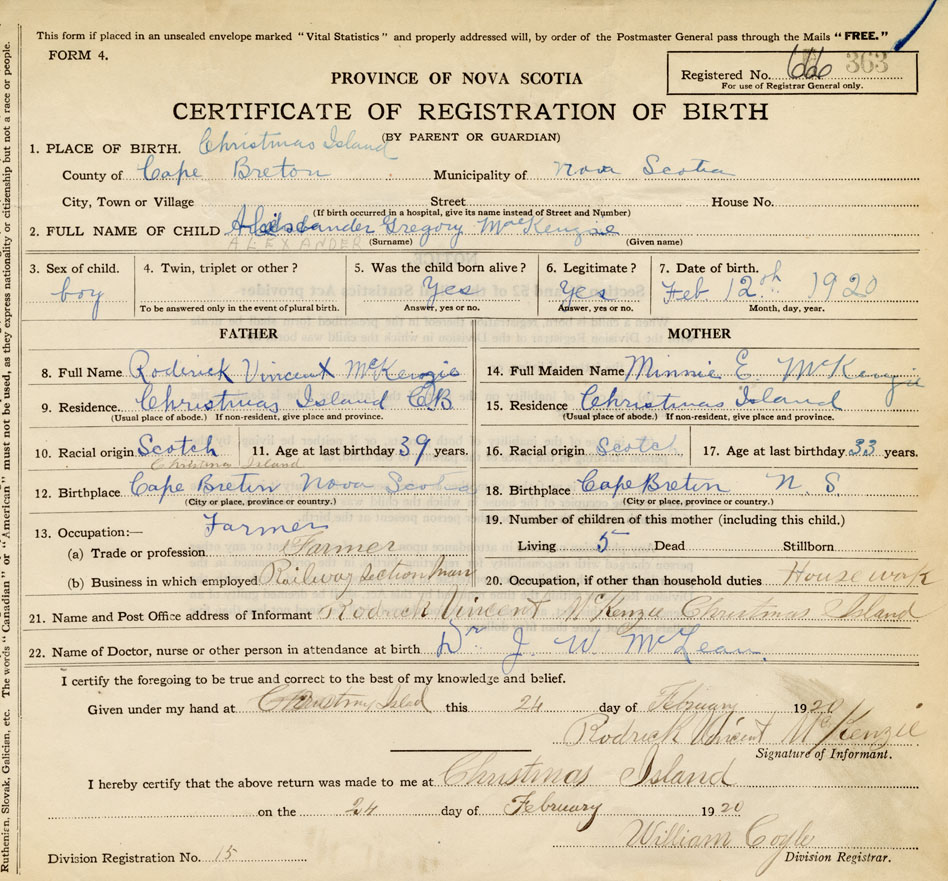 This form if placed in an unsealed envelope marked "Vital Statistics" and properly addressed will, by order of the Postmaster General pass through the Mails "FREE."
FORM 4.
PROVINCE OF NOVA SCOTIA
Registered No. 66 363
For use of Registrar General only.
CERTIFICATE OF REGISTRATION OF BIRTH
(BY PARENT OR GUARDIAN)
1. PLACE OF BIRTH. Christmas Island
County of Cape Breton Municipality of Nova Scotia
City, Town or Village Street House No.
(If birth occurred in a hospital, give its name instead of Street and Number)
2. FULL NAME OF CHILD Gregory McKenzie
ALEXANDER (Surname) (Given name)
3. Sex of child. boy
4. Twin, triplet or other?
To be answered only in the event of plural birth.
5. Was the child born alive? Yes
Answer, yes or no.
6. Legitimate? Yes
Answer, yes or no.
7. Date of birth. Feb 12th 1920
Month, day, year.
FATHER
8. Full Name Roderick Vincent McKenzie
9. Residence. Christmas Island CB
(Usual place of abode.) If non-resident, give place and province.
10. Racial origin Scotch 11. Age at last birthday 39 years.
Christmas Island
12. Birthplace Cape Breton Nova Scotia
(City or place, province or country.)
13. Occupation:— Farmer
(a) Trade or profession Farmer
(b) Business in which employed Railway section man
MOTHER
14. Full Maiden Name Minnie E McKenzie
15. Residence Christmas Island
(Usual place of abode.) If non-resident, give place and province.
16. Racial origin Scotch 17. Age at last birthday 33 years.
18. Birthplace Cape Breton N. S
(City or place, province or country.)
19. Number of children of this mother (including this child.)
Living 5 Dead Stillborn
20. Occupation, if other than household duties House work
21. Name and Post Office address of Informant Rodrick Vincent McKenzie Christmas Island
22. Name of Doctor, nurse or other person in attendance at birth Dr J. W. McLean.
I certify the foregoing to be true and correct to the best of my knowledge and belief.
Given under my hand at Christmas this 24 day of February 1920
Rodrick Vincent McKenzie
Signature of Informant.
I hereby certify that the above return was made to me at Christmas Island
on the 24 day of February 1920
William Coyle
Division Registration No. 15 Division Registrar.
Ruthenian, Slovak, Galician, etc. The words "Canadian" or "American" must not be used, as they express nationality or citizenship but not a race or people.